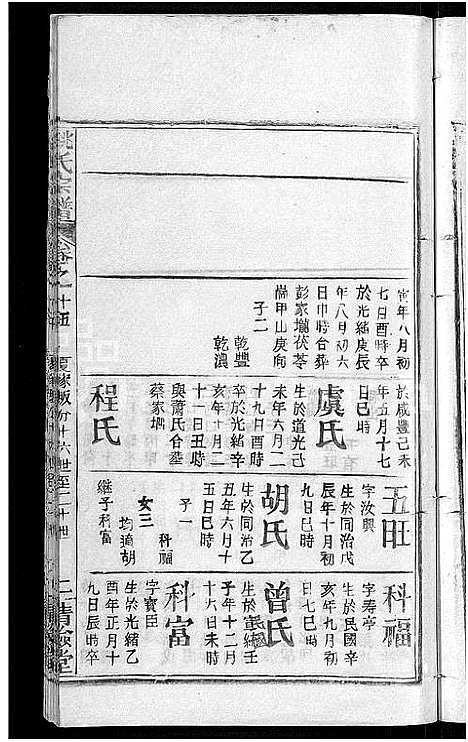 寅年八月初
七日酉時卒
於光緒庚辰
年八月初六
日巾時合葬
彭家壪茯苓
㟁甲山庚向
子二
乾豐
乾濃
於咸豐己未
年五月十七
日巳時
虞氏
生於道光己
未年六月二
十九日酉時
卒於光緒辛
亥年十月二
十一日丑時
與蕭氏合塟
蔡家壪
程氏
五旺
字汝興
生於同治戊
辰年十月初
九日巳時
胡氏
生於同治乙
丑年六月十
五日巳時
子一
科福
女三
均適胡
繼子科富
科福
字壽亭
生於民國辛
亥年九月初
七日巳時
曾氏
生於民國壬
子年十二月
十六日未時
科富
字寶臣
生於光緒乙
酉年正月十
九日辰時
氏宗譜
卷之十五
世至二十世
堂